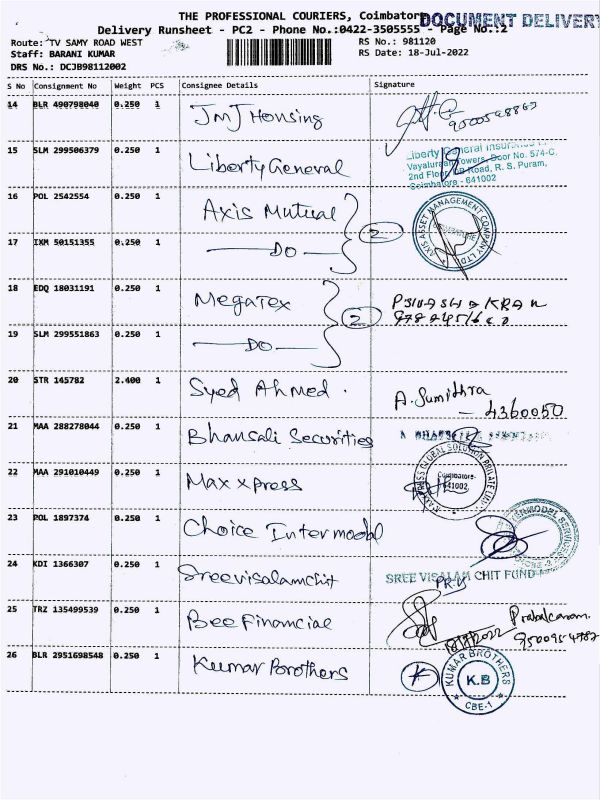 THE PROFESSIONAL COURIERS, Coimbatore
DOCUMENT DELIVERY
Delivery Runsheet - PC2 - Phone No.:0422-3505555 - Page No.:2
Route: TV SAMY ROAD WEST
RS No.: 981120
Staff: BARANI KUMAR
RS Date: 18-Jul-2022
DRS No.: DCJB98112002
S No Consignment No Weight PCS Consignee Details Signature
14 BLR 490798040 0.250 1 JMJ Housing
15 SLM 299506379 0.250 1 Liberty General
Liberty General Insurance
Vayaluraan Towers, Door No. 574-C,
2nd Floor, Road, R. S. Puram,
Coimbatore - 641002
16 POL 2542554 0.250 1 Axis Mutual
2
AXIS ASSET MANAGEMENT COMPANY LTD
17 IXM 50151355 0.250 1 DO
18 EDQ 18031191 0.250 1 Megatex
2
19 SLM 299551863 0.250 1 DO
20 STR 145782 2.400 1 Syed Ahmed.
A. Sumithra
- 4360050
21 MAA 288278044 0.250 1 Bhansali Securities
22 MAA 291010449 0.250 1 Maxxpress
Coimbatore-
641002
23 POL 1897374 0.250 1 Choice Intermodal
24 KDI 1366307 0.250 1 Sreevisalamchit
SREE VISALAM CHIT FUND
25 TRZ 135499539 0.250 1 Bee Financial
18/7/2022
26 BLR 2951698548 0.250 1 Kumar Borothers
KUMAR BROTHERS
K.B
CBE-1